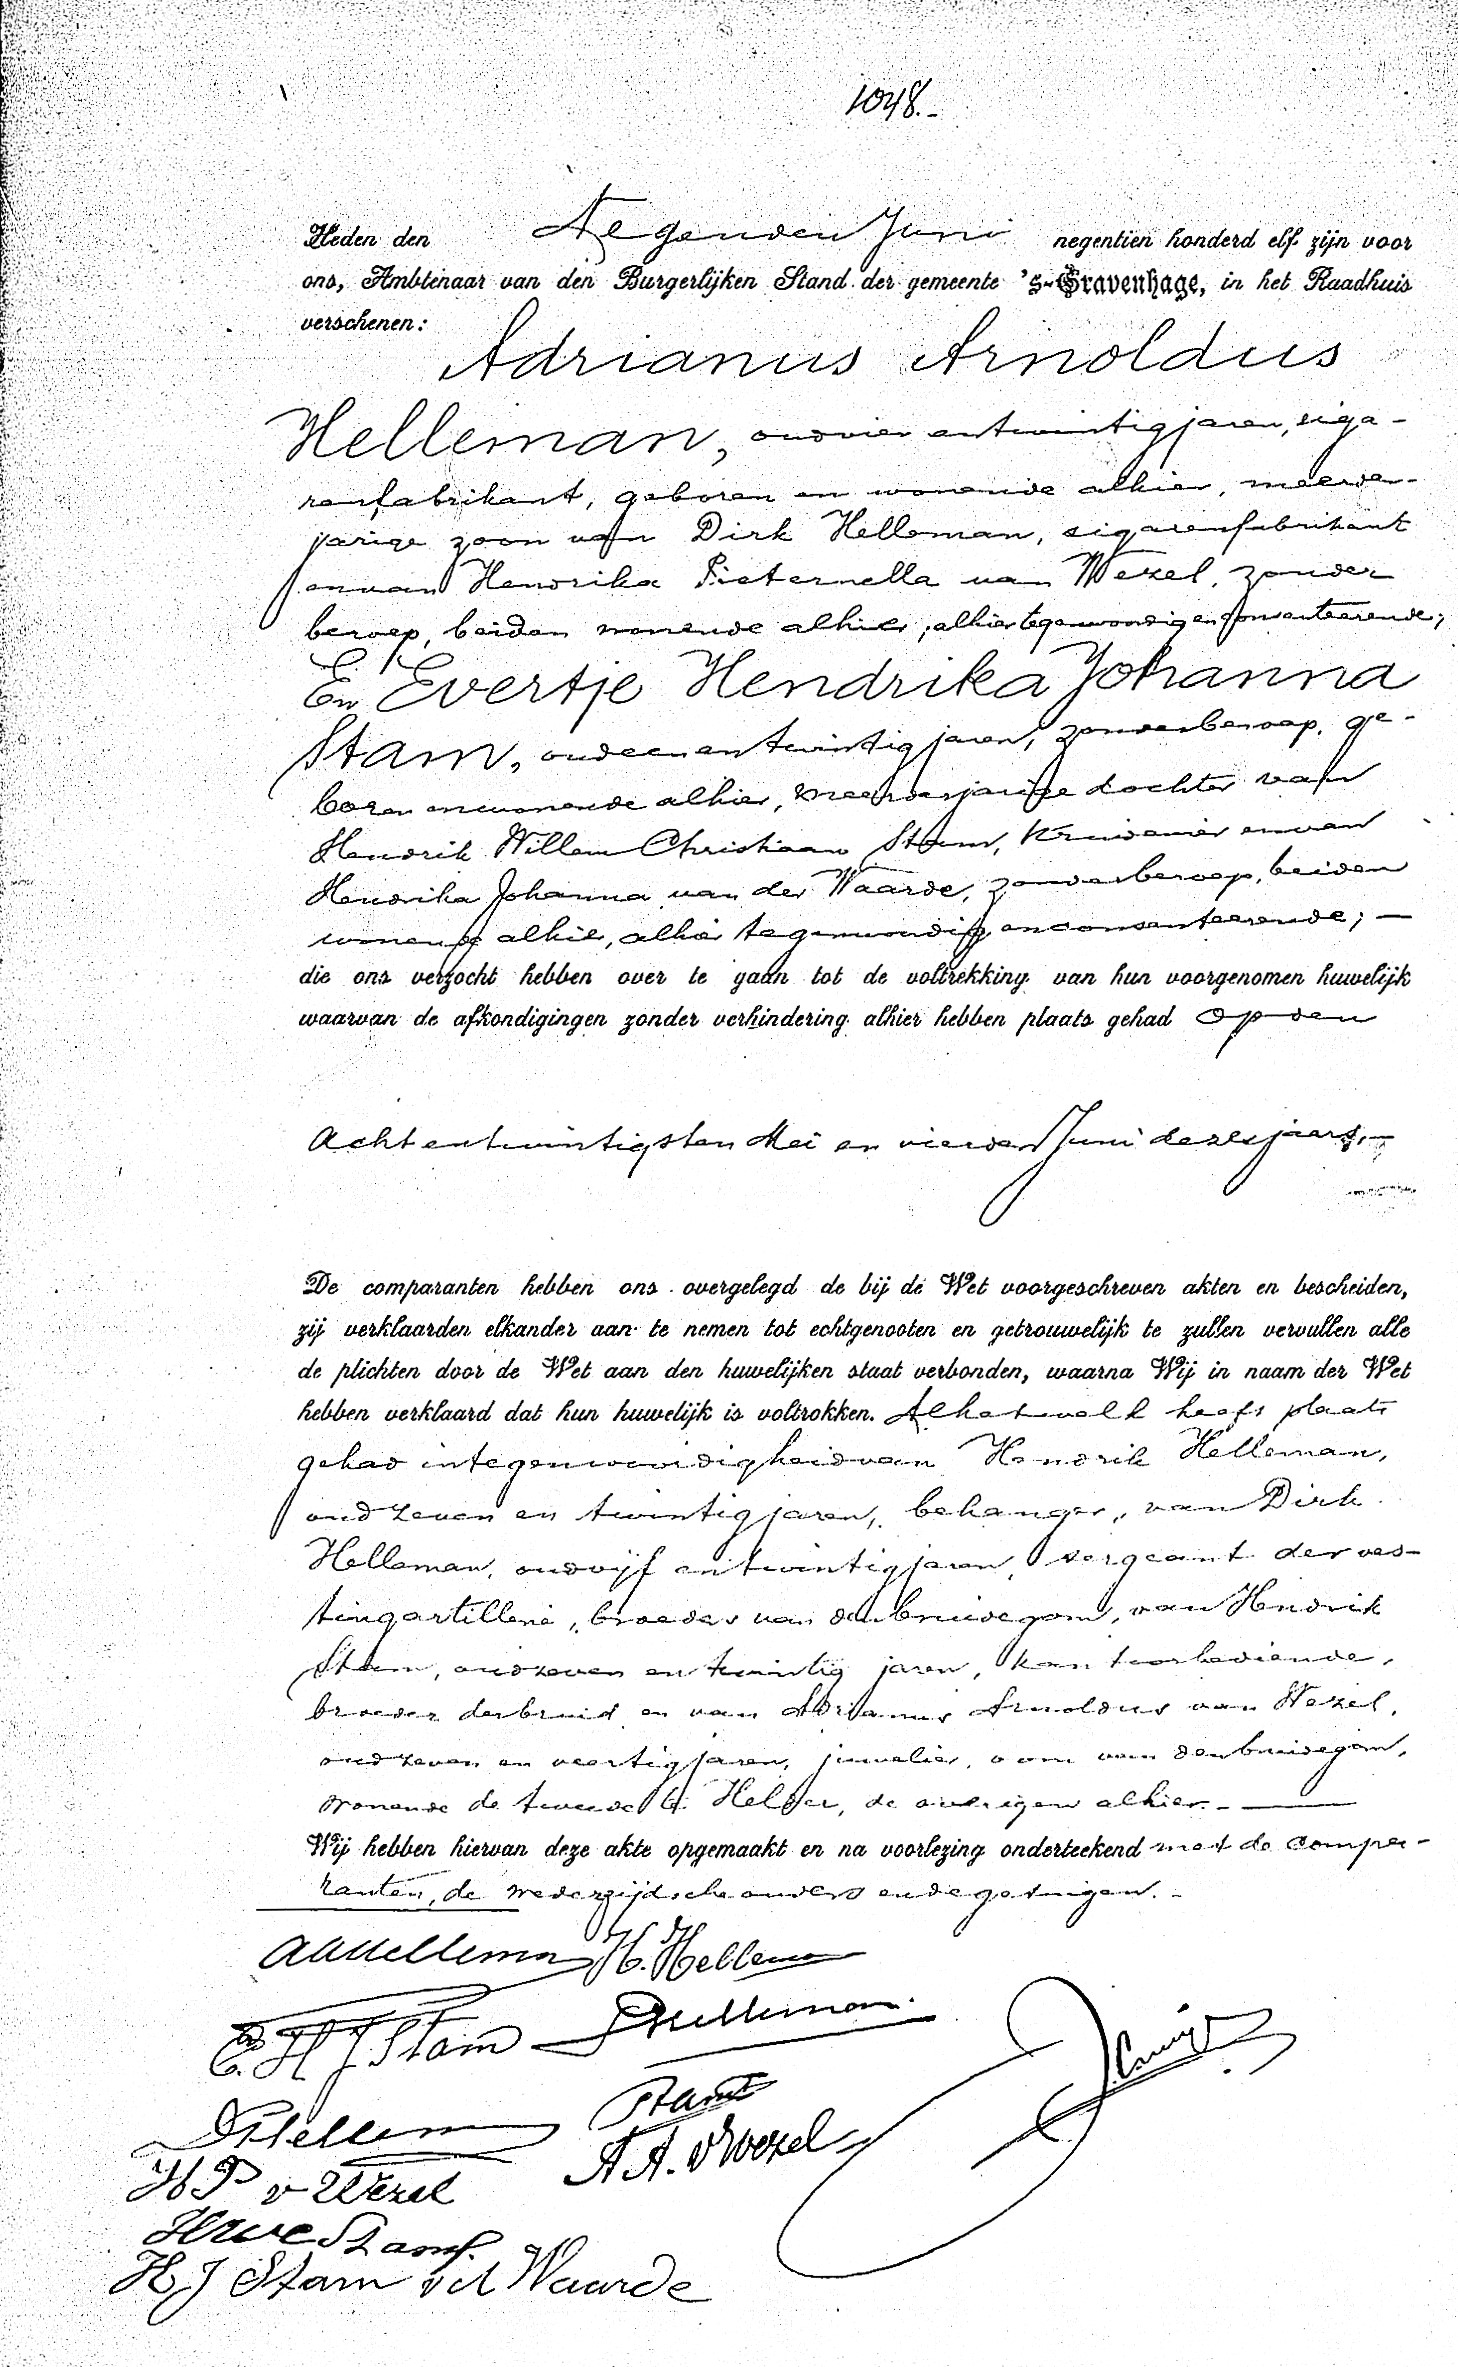 1048.-
Heden den Negenden Juni negentien honderd elf zijn voor
ons, Ambtenaar van den Burgerlijken Stand der gemeente 's-Gravenhage, in het Raadhuis
verschenen:
Adrianus Arnoldus
Helleman, oud vier en twintig jaren, siga-
renfabrikant, geboren en wonende alhier, meerder-
jarige zoon van Dirk Helleman, sigarenfabrikant
en van Hendrika Pieternella van Wezel, zonder
beroep, beiden wonende alhier, alhier tegenwoordig en consenteerende;
En Evertje Hendrika Johanna
Stam, oud een en twintig jaren, zonder beroep, ge-
boren en wonende alhier, meerderjarige dochter van
Hendrik Willem Christiaan Stam, Kruidenier en van
Hendrika Johanna van der Waarde, zonder beroep, beiden
wonende alhier, alhier tegenwoordig en consenteerende; —
die ons verzocht hebben over te gaan tot de voltrekking van hun voorgenomen huwelijk
waarvan de afkondigingen zonder verhindering alhier hebben plaats gehad op den
Achtentwintigsten Mei en vierden Juni dezes jaars,—
De comparanten hebben ons overgelegd de bij de Wet voorgeschreven akten en bescheiden,
zij verklaarden elkander aan te nemen tot echtgenooten en getrouwelijk te zullen vervullen alle
de plichten door de Wet aan den huwelijken staat verbonden, waarna Wij in naam der Wet
hebben verklaard dat hun huwelijk is voltrokken. Al hetwelk heeft plaats
gehad in tegenwoordigheid van Hendrik Helleman,
oud zeven en twintig jaren, behanger, van Dirk
Helleman, oud vijf en twintig jaren, sergeant der ves-
tingartillerie, broeders van den bruidegom, van Hendrik
Stam, oud zeven en twintig jaren, kantoorbediende,
broeder der bruid en van Adrianus Arnoldus van Wezel,
oud zeven en veertig jaren, juwelier, oom van den bruidegom,
wonende de tweede te Helder, de overigen alhier.-
Wij hebben hiervan deze akte opgemaakt en na voorlezing onderteekend met de compa-
ranten, de wederzijdsche ouders en de getuigen.-
AAHelleman H. Helleman
E. H J Stam DHelleman.
DHelleman Stam
H P v Wezel A A. v Wezel
HWC Stam.
H J Stam v d Waarde